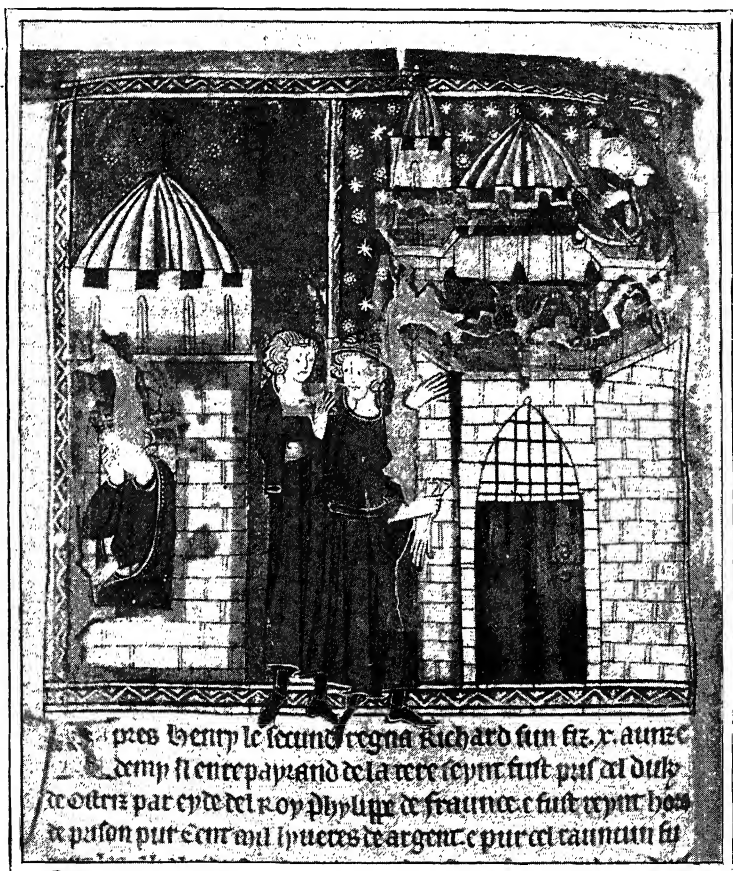 pres henry le secund regna Richard sun fiz .x. aunz e
demy si en repayrand de la tere seynt fust pris del duk
de Ostriz par eyde del Roy Phylippe de fraunce . e fust reynt hors
de prison pur Cent mil lyueres de argent . e pur cel raunzun fu